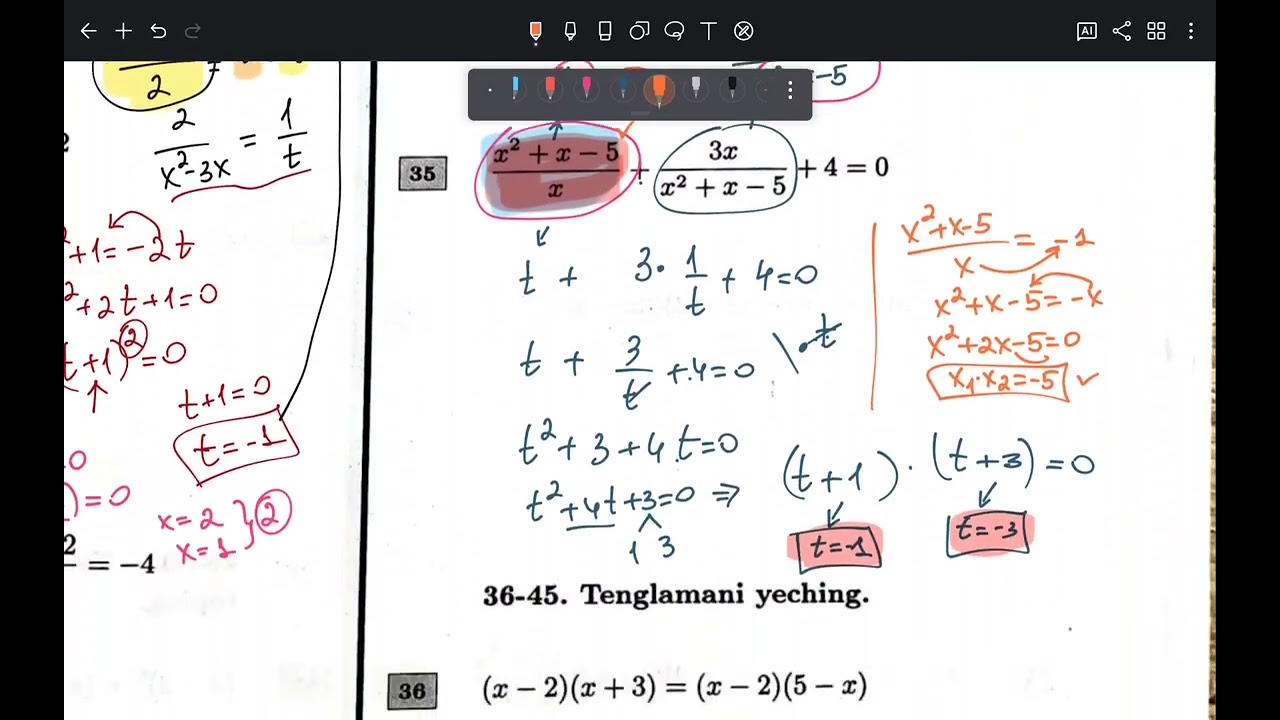 AI
2
2/(x²-3x) = 1/t
+1=-2t
+2t+1=0
t+1)²=0
t+1=0
t=-1
)=0
x=2
x=1
2
= -4
-5
35
(x² + x − 5)/x + 3x/(x² + x − 5) + 4 = 0
t + 3·1/t + 4=0
t + 3/t + 4=0 \·t
t²+3+4.t=0
t²+4t+3=0 ⇒
1 3
(t+1)·(t+3)=0
t=-1 t=-3
(x²+x-5)/x = -1
x²+x-5=-x
x²+2x-5=0
x₁·x₂=-5 ✓
36-45. Tenglamani yeching.
36
(x − 2)(x + 3) = (x − 2)(5 − x)